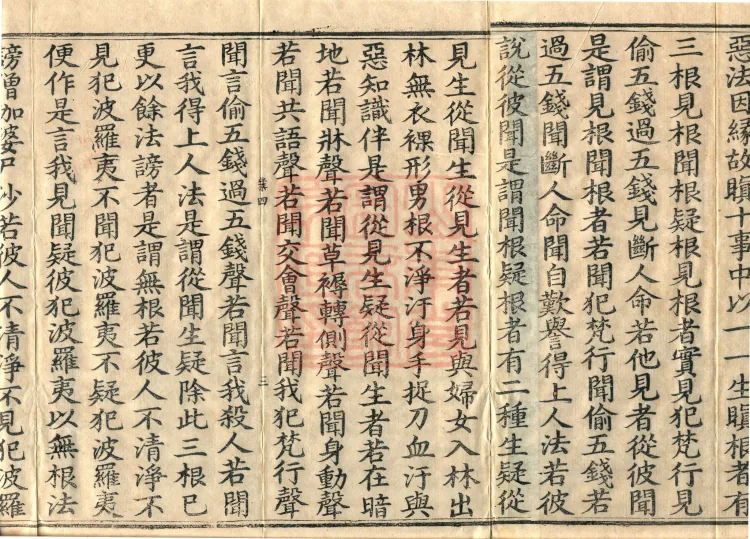 惡法因緣故瞋十事中以一一生瞋根者有
三根見根聞根疑根見根者實見犯梵行見
偷五錢過五錢見斷人命若他見者從彼聞
是謂見根聞根者若聞犯梵行聞偷五錢若
過五錢聞斷人命聞自歎譽得上人法若彼
說從彼聞是謂聞根疑根者有二種生疑從
見生從聞生從見生者若見與婦女入林出
林無衣裸形男根不淨汙身手捉刀血汙與
惡知識伴是謂從見生疑從聞生者若在暗
地若聞牀聲若聞草褥轉側聲若聞身動聲
若聞共語聲若聞交會聲若聞我犯梵行聲
葉四 三
聞言偷五錢過五錢聲若聞言我殺人若聞
言我得上人法是謂從聞生疑除此三根已
更以餘法謗者是謂無根若彼人不清淨不
見犯波羅夷不聞犯波羅夷不疑犯波羅夷
便作是言我見聞疑彼犯波羅夷以無根法
謗僧加婆尸沙若彼人不清淨不見犯波羅